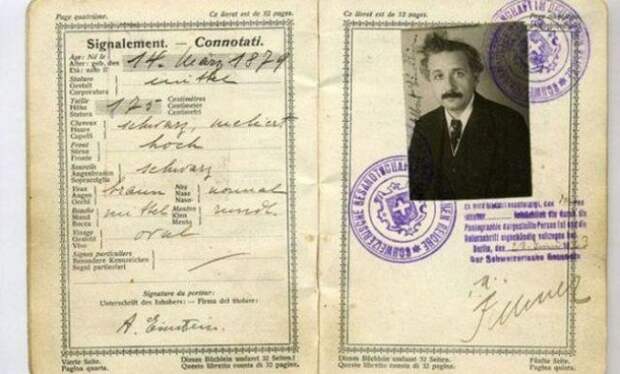 Page quatrième.
Ce livret est de 32 pages.
Signalement. — Connotati.
Age: Né le
Alter: geb. den
Età: nato il
14. März 1879
Stature
Gestalt
Corporatura
mittel
Taille
Höhe
Statura
175
Centimètres
Centimeter
Centimetri
Cheveux
Haare
Capelli
schwarz, meliert
Front
Stirne
Fronte
hoch
Sourcils
Augenbrauen
Sopracciglia
schwarz
Yeux
Augen
Occhi
braun
Nez
Nase
Naso
normal
Bouche
Mund
Bocca
mittel
Menton
Kinn
Mento
rund
Visage
Gesicht
Viso
oval
Signes particuliers
Besondere Kennzeichen
Segni particolari
Signature du porteur:
Unterschrift des Inhabers: — Firma del titolare:
A. Einstein.
Vierte Seite.
Dieses Büchlein umfasst 32 Seiten.
Pagina quarta.
Questo libretto conta di 32 pagine.
Ce livret est de 32 pages.
Page cinquième.
SCHWEIZERISCHE GESANDTSCHAFT
Es wird hiermit bescheinigt, dass
durch die
Photographie dargestellte Person ist und die
Unterschrift eigenhändig vollzogen hat
Berlin, den
Der Schweizerische Gesandte
Dieses Büchlein umfasst 32 Seiten.
Fünfte Seite.
Questo libretto conta di 32 pagine.
Pagina quinta.